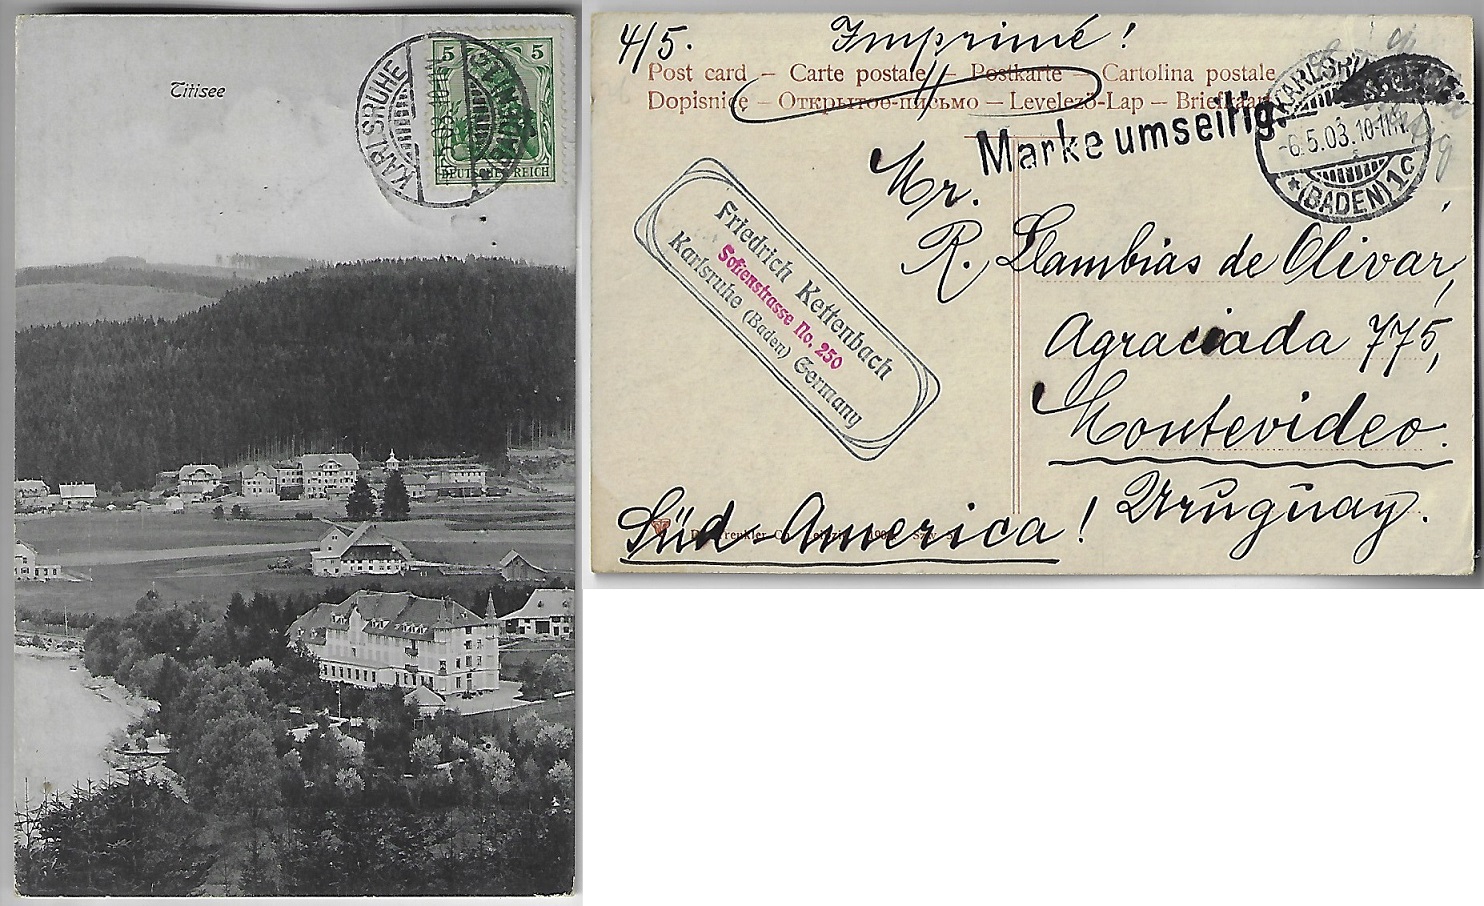 Titisee
KARLSRUHE
(BADEN)
5 5
DEUTSCHES REICH
4/5. Imprimé!
Post card – Carte postale – Postkarte – Cartolina postale
Dopisnice – Открытое-письмо – Levelező-Lap – Briefkaart
Marke umseitig.
KARLSRUHE
-6.5.03.10-11V.
*(BADEN)1c
Mr.
R. Llambias de Olivar,
Agraciada 775,
Montevideo.
Uruguay.
Süd-America!
Friedrich Kettenbach
Sofienstrasse No. 250
Karlsruhe (Baden) Germany
Trenkler Co. Leipzig